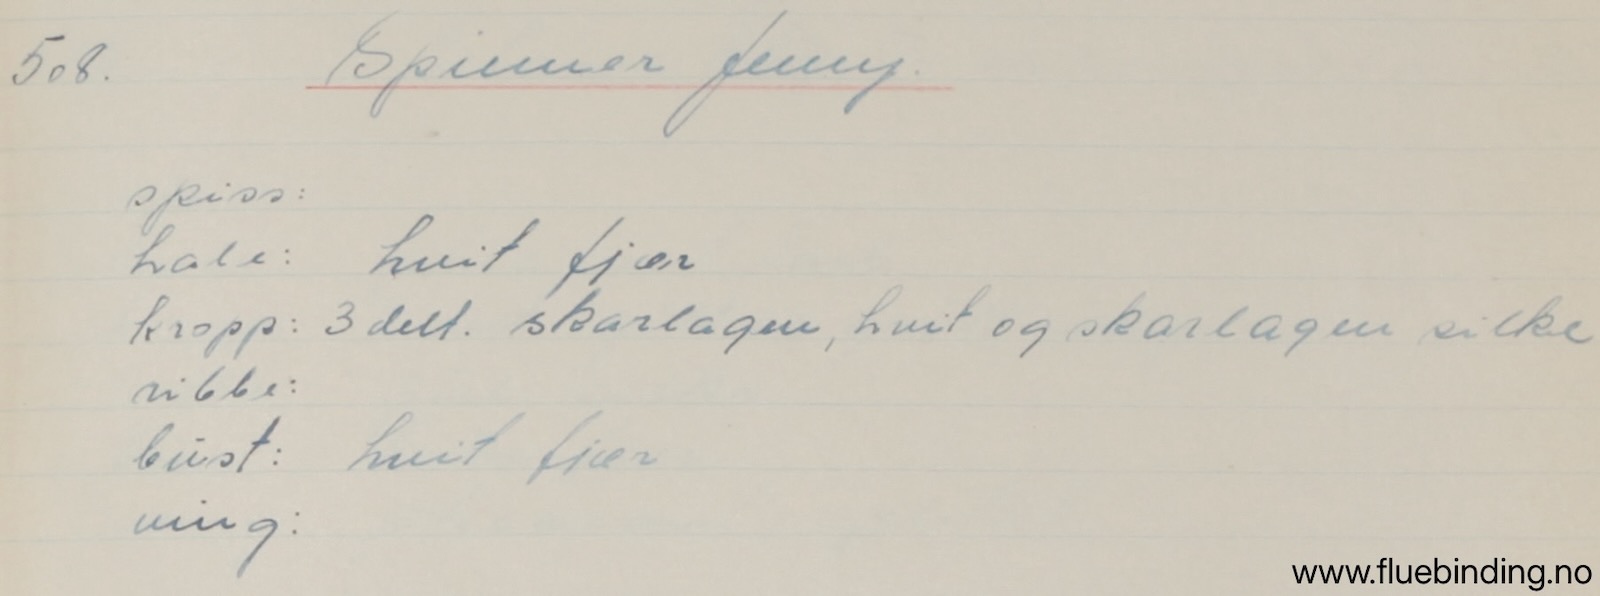 508. Spinner Jenny.
spiss:
hale: hvit fjær
kropp: 3 delt. skarlagen, hvit og skarlagen silke
ribbe:
bust: hvit fjær
ving:
www.fluebinding.no